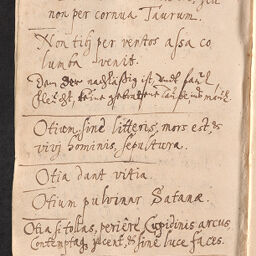 non per cornua Taurum.
Non tibj per ventos assa co
lumba venit.
Dan der nachläßig ist, undt faul,
Otium sine litteris, mors est, &
vivj hominis sepultura.
Otia dant vitia.
Otium pulvinar Satanæ.
Otia si tollas, periêre Cupidinis arcus,
Contemptaq jacent, & sine luce faces.